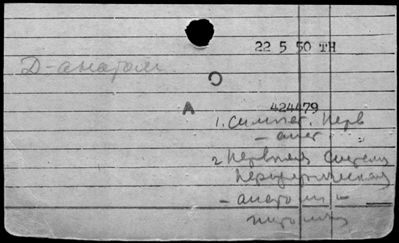 22 5 50 TH
Д-анатом
О
А
424479
1. Симпат. нерв
- анат.
2 Нервная система
периферическая
- анатомия -